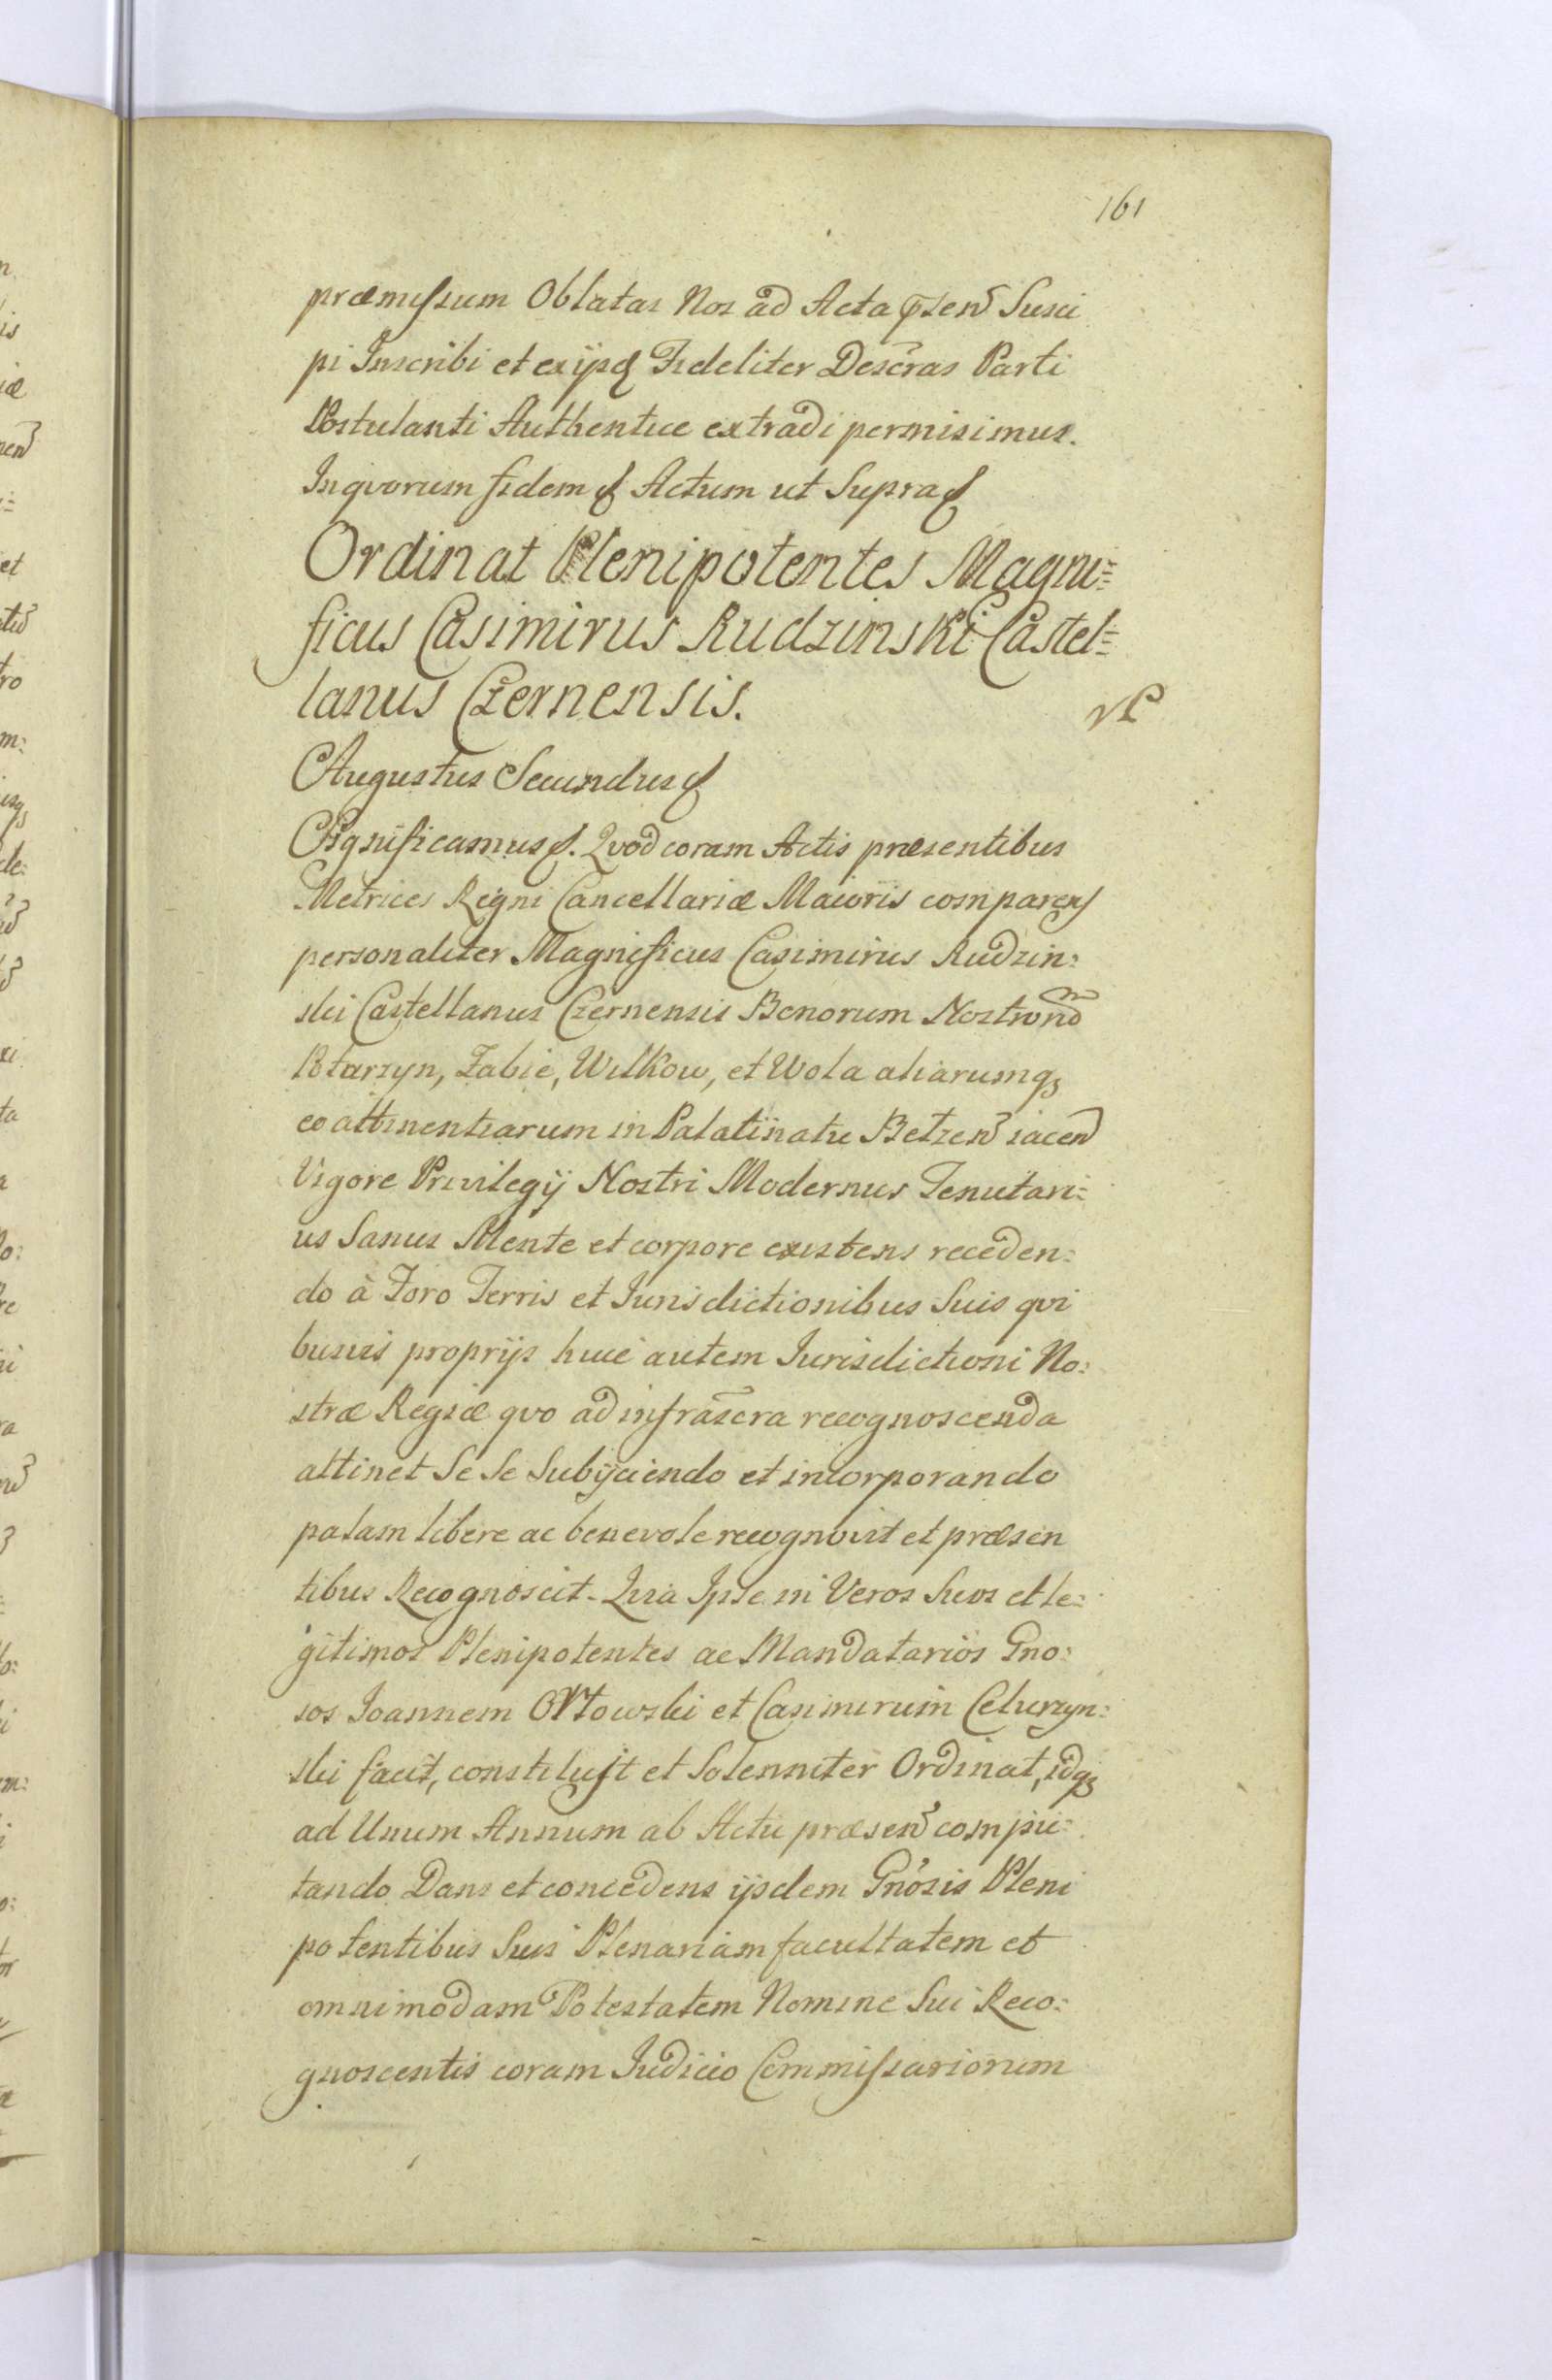 161
præmissum Oblatas Nos ad Acta pñsen Susci
pi Inscribi et ex ijsd Fideliter Descras Parti
Postulanti Authentice extradi permisimus.
Inqvorum fidem & Actum ut Supra &
Ordinat Plenipotentes Magni=
ficus Casimirus Rudzinski Castel=
lanus Czernensis.
Augustus Secundus &
Significamus &. Qvod coram Actis præsentibus
Metrices Regni Cancellariæ Maioris comparens
personaliter Magnificus Casimirus Rudzin:
ski Castellanus Czernensis Bonorum Nostrorum
Ptarzyn, Zabie, Wilkow, et Wola aliarumq3
eo attinentiarum in Palatinatu Betzen iacen
Vigore Privilegij Nostri Modernus Tenutari:
us Sanus Mente et corpore existens receden:
do à Foro Terris et Iurisdictionibus Suis qvi
busvis proprijs huic autem Iurisdictioni No:
stræ Regiæ qvo ad infrascra recognoscenda
attinet Se Se Subijciendo et incorporando
palam libere ac benevole recognovit et præsen
tibus Recognoscit. Qvia Ipse in Veros Suos et le:
gitimos Plenipotentes ac Mandatarios Gno:
sos Ioannem Ortowski et Casimirum Celurzyn:
ski facit, constituit et Solenniter Ordinat, idq3
ad Unum Annum ab Actu præsen compu:
tando Dans et concedens ijsdem Gnosis Pleni
potentibus Suis Plenariam facultatem et
omnimodam Potestatem Nomine Sui Reco:
gnoscentis coram Iudicio Commissariorum